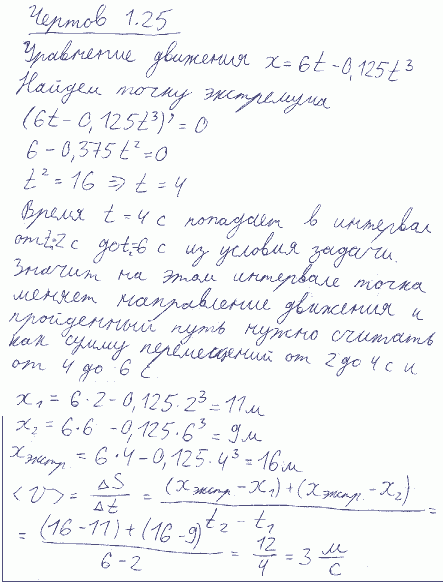 Чертов 1.25
Уравнение движения x = 6t - 0,125t³
Найдем точку экстремума
(6t - 0,125t³)' = 0
6 - 0,375t² = 0
t² = 16 ⇒ t = 4
Время t = 4 с попадает в интервал
от t₁=2 с до t₂=6 с из условия задачи.
Значит на этом интервале точка
меняет направление движения и
пройденный путь нужно считать
как сумму перемещений от 2 до 4 с и
от 4 до 6 с
x₁ = 6·2 - 0,125·2³ = 11 м
x₂ = 6·6 - 0,125·6³ = 9 м
xэкстр. = 6·4 - 0,125·4³ = 16 м
<v> = ΔS/Δt = ((xэкстр. - x₁) + (xэкстр. - x₂))/(t₂ - t₁) =
= ((16 - 11) + (16 - 9))/(6 - 2) = 12/4 = 3 м/с